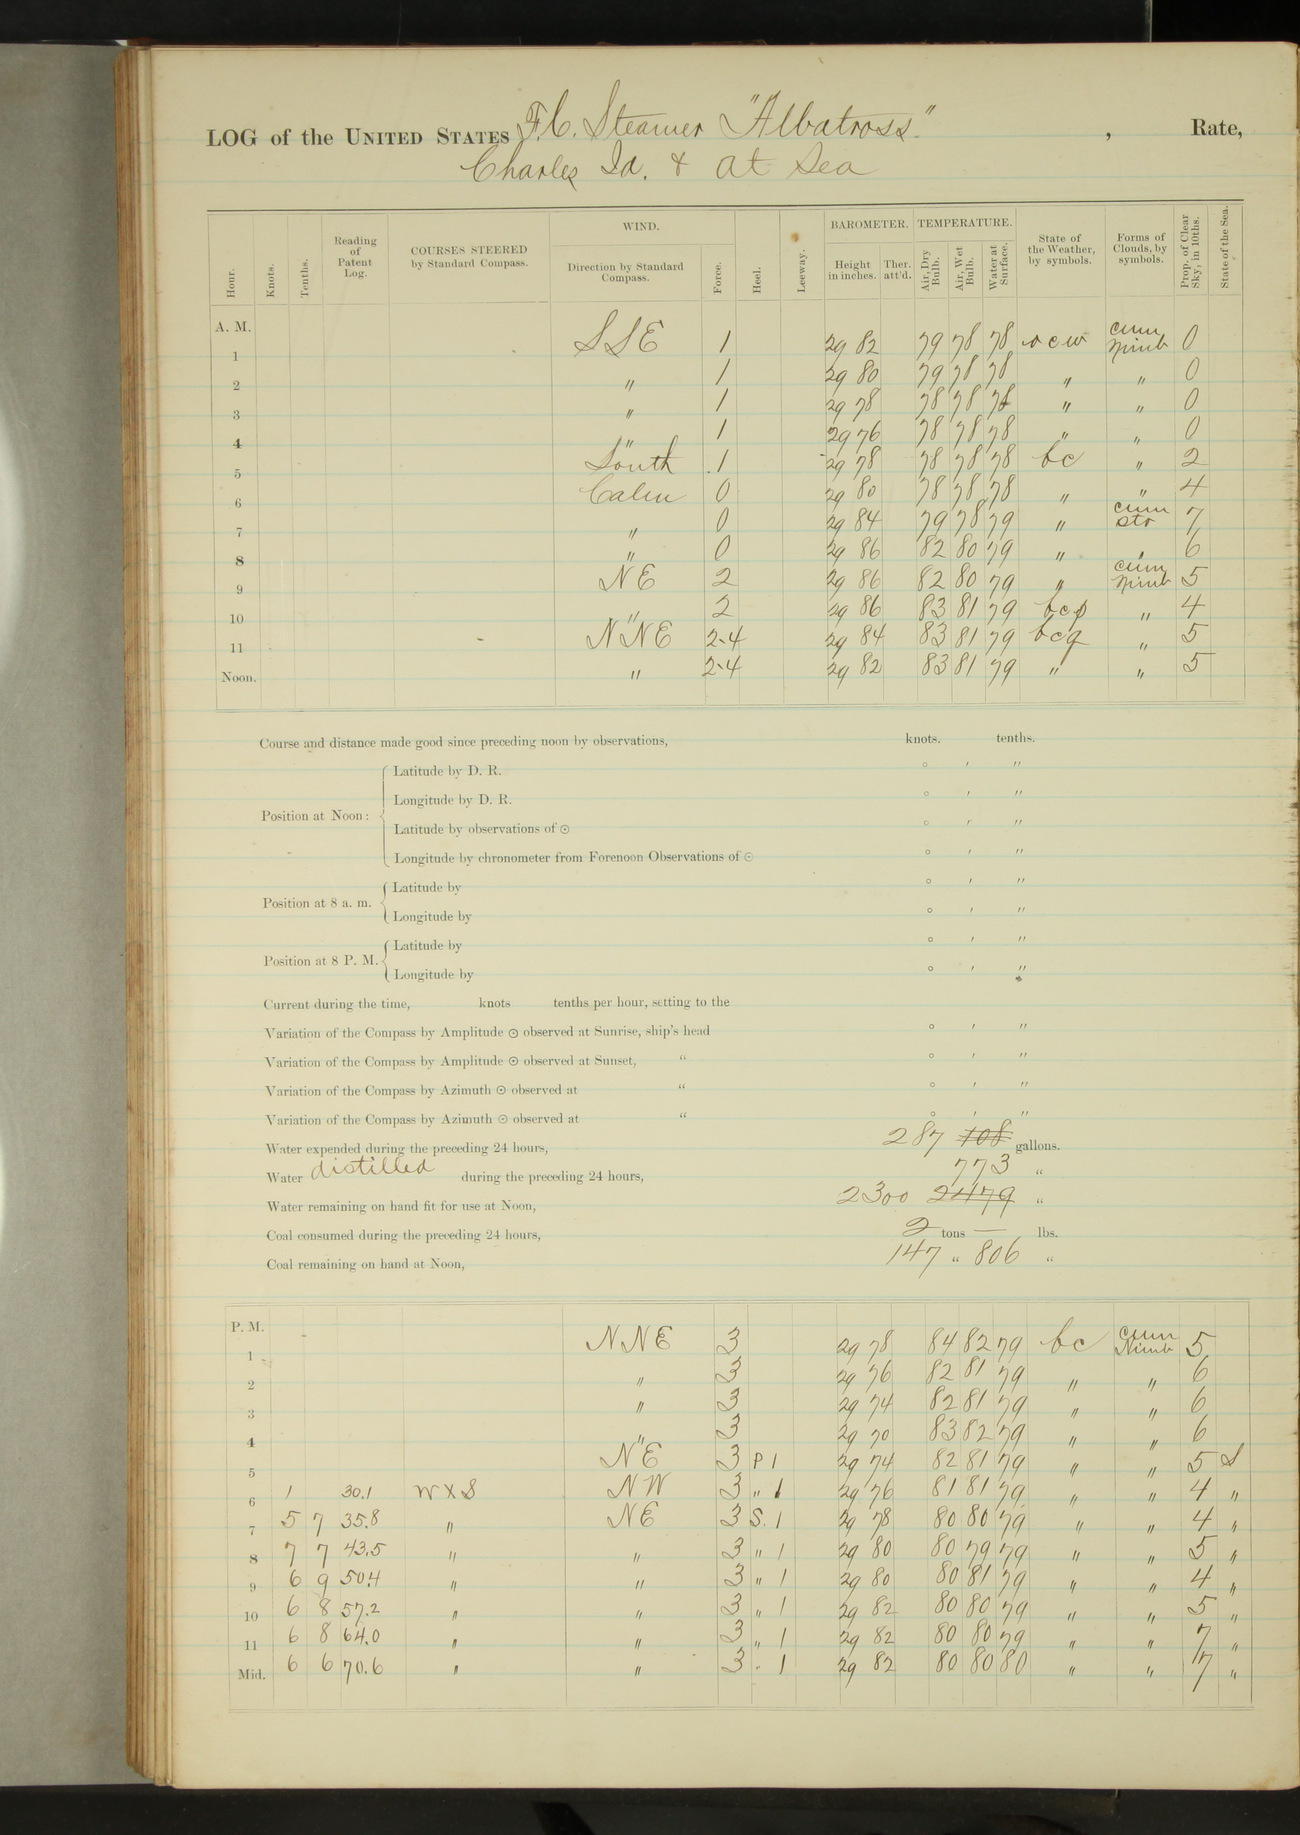 LOG of the UNITED STATES F.C. Steamer "Albatross" , Rate,
Charles Id. & at Sea
Hour. Knots. Tenths. Reading of Patent Log. COURSES STEERED by Standard Compass. WIND. Direction by Standard Compass. Force. Heel. Leeway. BAROMETER. Height in inches. Ther. att'd. TEMPERATURE. Air, Dry Bulb. Air, Wet Bulb. Water at Surface. State of the Weather, by symbols. Forms of Clouds, by symbols. Prop. of Clear Sky, in 10ths. State of the Sea.
A. M.
1 SSE 1 29 82 79 78 78 ocw cum Nimb 0
2 " 1 29 80 79 78 78 " " 0
3 " 1 29 78 78 78 78 " " 0
4 " 1 29 76 78 78 78 " " 0
5 South 1 29 78 78 78 78 bc " 2
6 Calm 0 29 80 78 78 78 " " 4
7 " 0 29 84 79 78 79 " cum str 7
8 " 0 29 86 82 80 79 " " 6
9 NE 2 29 86 82 80 79 " cum Nimb 5
10 " 2 29 86 83 81 79 bcp " 4
11 NNE 2-4 29 84 83 81 79 bcq " 5
Noon. " 2-4 29 82 83 81 79 " " 5
Course and distance made good since preceding noon by observations, knots. tenths.
Position at Noon:
Latitude by D. R. ° ' "
Longitude by D. R. ° ' "
Latitude by observations of ⊙ ° ' "
Longitude by chronometer from Forenoon Observations of ⊙ ° ' "
Position at 8 a. m.
Latitude by ° ' "
Longitude by ° ' "
Position at 8 P. M.
Latitude by ° ' "
Longitude by ° ' "
Current during the time, knots tenths per hour, setting to the
Variation of the Compass by Amplitude ⊙ observed at Sunrise, ship's head ° ' "
Variation of the Compass by Amplitude ⊙ observed at Sunset, " ° ' "
Variation of the Compass by Azimuth ⊙ observed at " ° ' "
Variation of the Compass by Azimuth ⊙ observed at " ° ' "
Water expended during the preceding 24 hours, 287 108 gallons.
Water distilled during the preceding 24 hours, 773 "
Water remaining on hand fit for use at Noon, 2300 2479 "
Coal consumed during the preceding 24 hours, 2 tons — lbs.
Coal remaining on hand at Noon, 147 " 806 "
P. M.
1 NNE 3 29 78 84 82 79 bc cum Nimb 5
2 " 3 29 76 82 81 79 " " 6
3 " 3 29 74 82 81 79 " " 6
4 " 3 29 70 83 82 79 " " 6
5 NE 3 P 1 29 74 82 81 79 " " 5 S
6 1 30.1 W X S NW 3 " 1 29 76 81 81 79 " " 4 "
7 5 7 35.8 " NE 3 S. 1 29 78 80 80 79 " " 4 "
8 7 7 43.5 " " 3 " 1 29 80 80 79 79 " " 5 "
9 6 9 50.4 " " 3 " 1 29 80 80 81 79 " " 4 "
10 6 8 57.2 " " 3 " 1 29 82 80 80 79 " " 5 "
11 6 8 64.0 " " 3 " 1 29 82 80 80 79 " " 7 "
Mid. 6 6 70.6 " " 3 " 1 29 82 80 80 80 " " 7 "